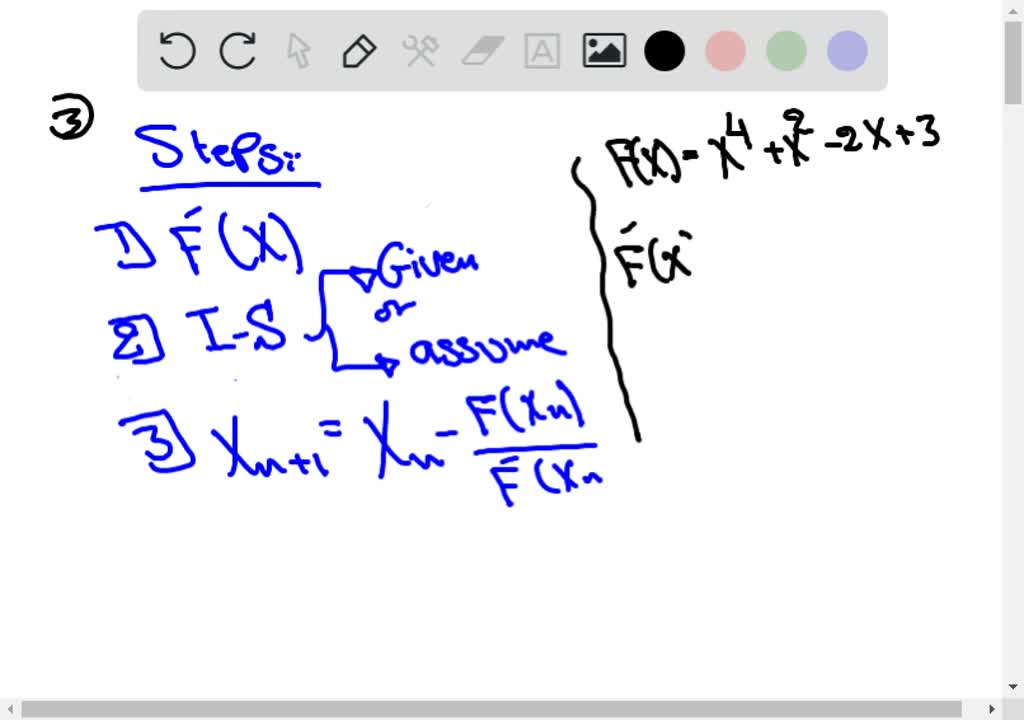 ③
Steps:
1) F́(X)
2) I-S
Given
or
assume
3) Xn+1 = Xn - F(Xn) / F́(Xn
F(X) = X^4 + X^2 - 2X + 3
F́(X